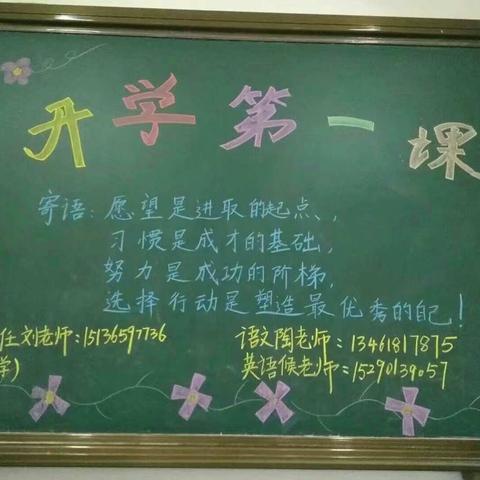 开学第一课
寄语:愿望是进取的起点、,
习惯是成才的基础,
努力是成功的阶梯,
选择行动是塑造最优秀的自己!
任刘老师:15136597736
学)
语文陶老师:13461817875
英语候老师:15290139057